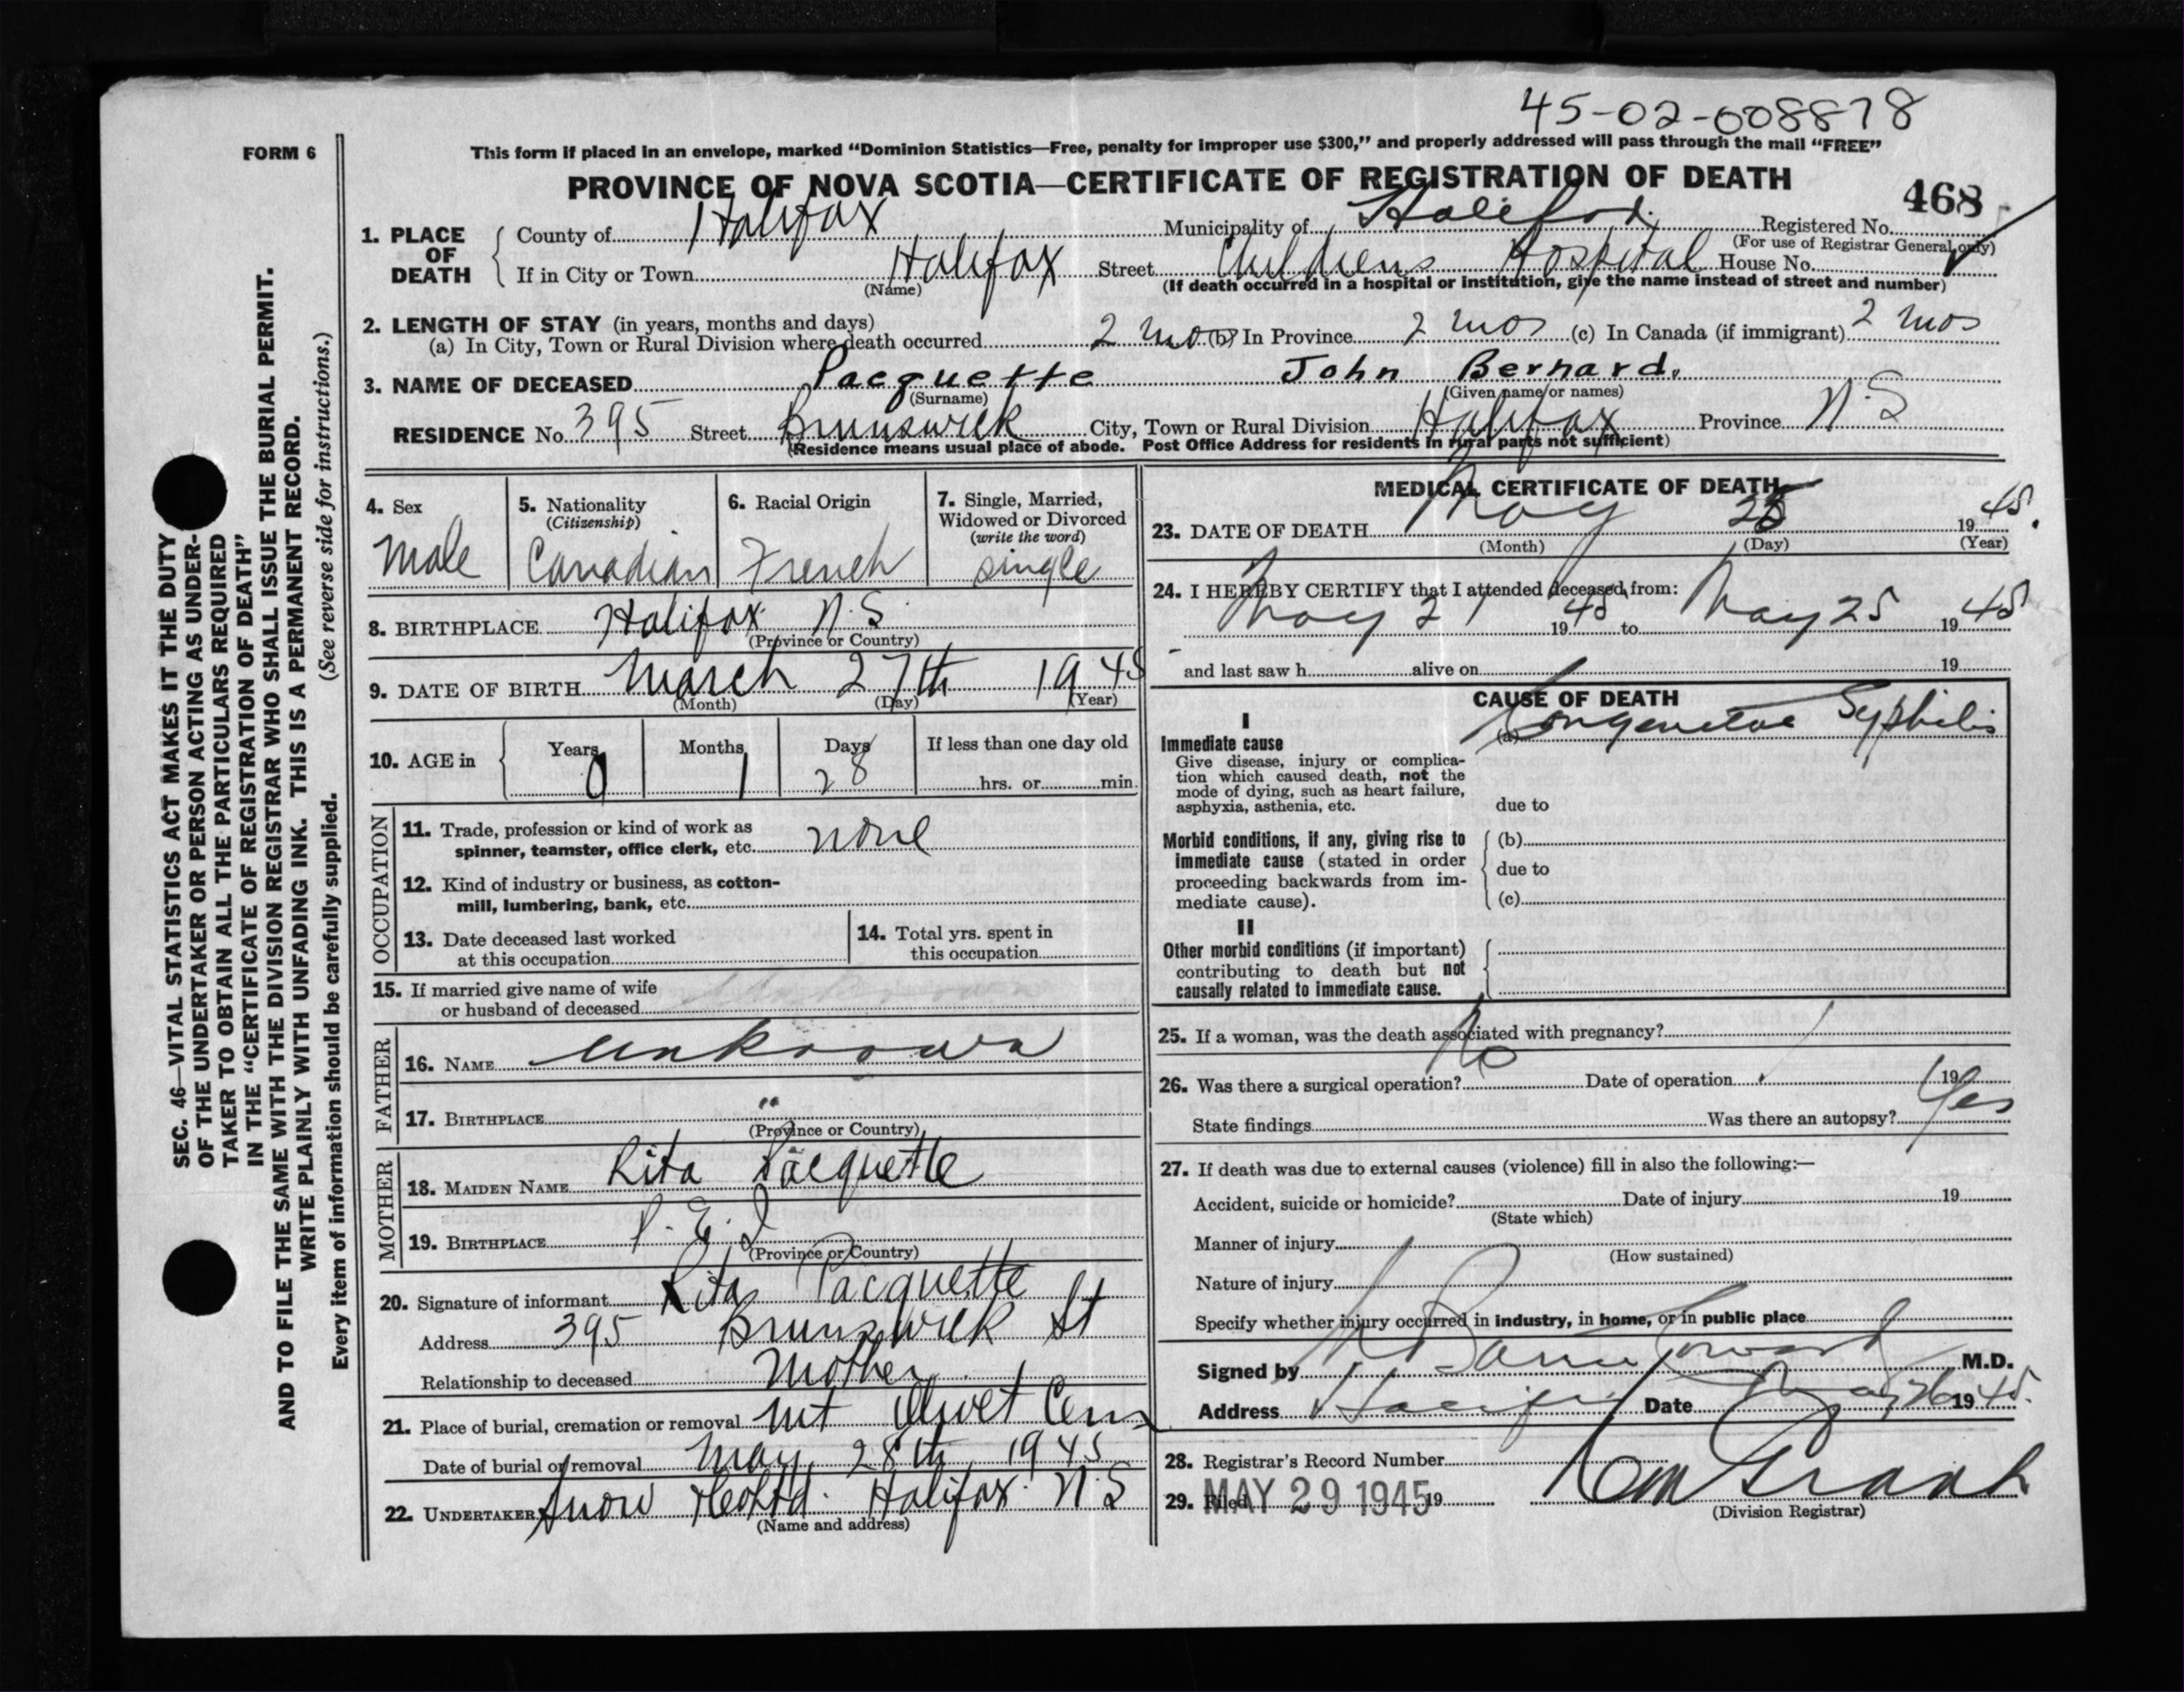 45-02-008878
FORM 6
This form if placed in an envelope, marked "Dominion Statistics—Free, penalty for improper use $300," and properly addressed will pass through the mail "FREE"
PROVINCE OF NOVA SCOTIA—CERTIFICATE OF REGISTRATION OF DEATH
468
1. PLACE OF DEATH
County of Halifax Municipality of Halifax Registered No.
(For use of Registrar General only)
If in City or Town Halifax Street Childrens Hospital House No.
(Name) (If death occurred in a hospital or institution, give the name instead of street and number)
2. LENGTH OF STAY (in years, months and days)
(a) In City, Town or Rural Division where death occurred 2 mo (b) In Province 2 mos (c) In Canada (if immigrant) 2 mos
3. NAME OF DECEASED Pacquette John Bernard.
(Surname) (Given name or names)
RESIDENCE No. 395 Street Brunswick City, Town or Rural Division Halifax Province N.S
(Residence means usual place of abode. Post Office Address for residents in rural parts not sufficient)
4. Sex
Male
5. Nationality
(Citizenship)
Canadian
6. Racial Origin
French
7. Single, Married,
Widowed or Divorced
(write the word)
single
8. BIRTHPLACE Halifax N.S.
(Province or Country)
9. DATE OF BIRTH March 27th 1945
(Month) (Day) (Year)
10. AGE in
Years Months Days If less than one day old
0 1 28 hrs. or min.
OCCUPATION
11. Trade, profession or kind of work as
spinner, teamster, office clerk, etc. none
12. Kind of industry or business, as cotton-
mill, lumbering, bank, etc.
13. Date deceased last worked
at this occupation
14. Total yrs. spent in
this occupation
15. If married give name of wife
or husband of deceased
FATHER
16. NAME unknown
17. BIRTHPLACE "
(Province or Country)
MOTHER
18. MAIDEN NAME Rita Pacquette
19. BIRTHPLACE P.E.I
(Province or Country)
20. Signature of informant Rita Pacquette
Address 395 Brunswick St
Relationship to deceased Mother
21. Place of burial, cremation or removal Mt Olivet Cem
Date of burial or removal May 28th 1945
22. UNDERTAKER Snow & Co Ltd. Halifax N.S
(Name and address)
MEDICAL CERTIFICATE OF DEATH
23. DATE OF DEATH May 25 1945.
(Month) (Day) (Year)
24. I HEREBY CERTIFY that I attended deceased from:
May 21 1945 to May 25 1945
and last saw h alive on 19
CAUSE OF DEATH
I
Immediate cause
Give disease, injury or complica-
tion which caused death, not the
mode of dying, such as heart failure,
asphyxia, asthenia, etc.
(a) Congenital Syphilis
due to
Morbid conditions, if any, giving rise to
immediate cause (stated in order
proceeding backwards from im-
mediate cause).
(b)
due to
(c)
II
Other morbid conditions (if important)
contributing to death but not
causally related to immediate cause.
25. If a woman, was the death associated with pregnancy?
26. Was there a surgical operation? No Date of operation 19
State findings Was there an autopsy? Yes
27. If death was due to external causes (violence) fill in also the following:—
Accident, suicide or homicide? Date of injury 19
(State which)
Manner of injury
(How sustained)
Nature of injury
Specify whether injury occurred in industry, in home, or in public place
Signed by M.D.
Address Halifax Date May 26 1945.
28. Registrar's Record Number
29. Filed MAY 29 1945 19
Grant
(Division Registrar)
SEC. 46—VITAL STATISTICS ACT MAKES IT THE DUTY
OF THE UNDERTAKER OR PERSON ACTING AS UNDER-
TAKER TO OBTAIN ALL THE PARTICULARS REQUIRED
IN THE "CERTIFICATE OF REGISTRATION OF DEATH"
AND TO FILE THE SAME WITH THE DIVISION REGISTRAR WHO SHALL ISSUE THE BURIAL PERMIT.
WRITE PLAINLY WITH UNFADING INK. THIS IS A PERMANENT RECORD.
Every item of information should be carefully supplied. (See reverse side for instructions.)